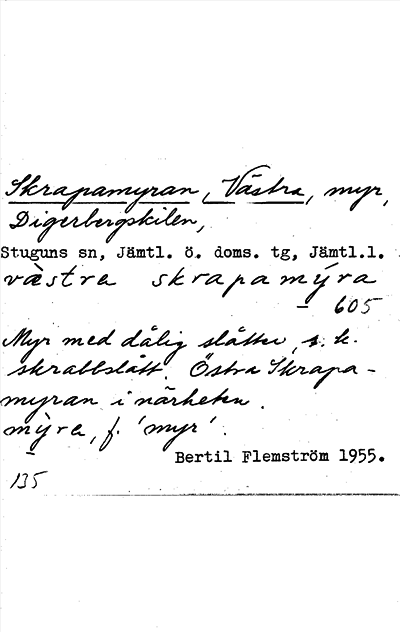 Skrapamyran, Västra, myr,
Digerbergskilen,
Stuguns sn, Jämtl. ö. doms. tg, Jämtl.l.
væ̀stra skrapamỳra
605
Myr med dålig slåtter, s. k.
skrabbslått. Östra Skrapa-
myran i närheten.
mỳra, f. 'myr'.
Bertil Flemström 1955.
135